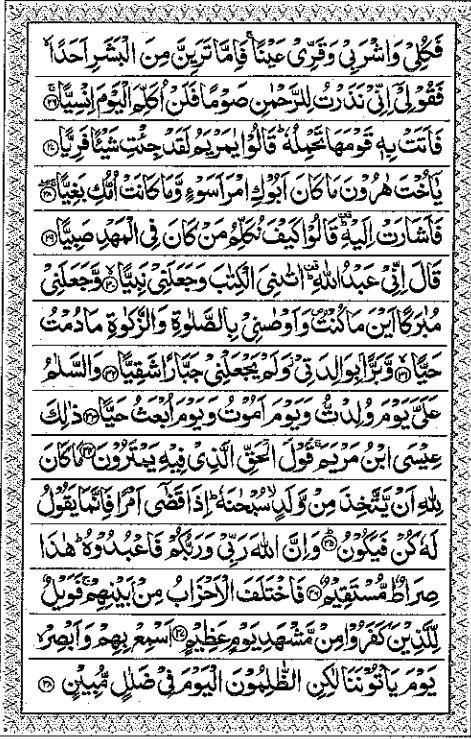 فَكُلِیْ وَاشْرَبِیْ وَقَرِّیْ عَیْنًا ۚ فَاِمَّا تَرَیِنَّ مِنَ الْبَشَرِ اَحَدًا ۙ
فَقُوْلِیْۤ اِنِّیْ نَذَرْتُ لِلرَّحْمٰنِ صَوْمًا فَلَنْ اُكَلِّمَ الْیَوْمَ اِنْسِیًّا ۚ
فَاَتَتْ بِهٖ قَوْمَهَا تَحْمِلُهٗ ؕ قَالُوْا یٰمَرْیَمُ لَقَدْ جِئْتِ شَیْـًٔا فَرِیًّا
یٰۤاُخْتَ هٰرُوْنَ مَا كَانَ اَبُوْكِ امْرَاَ سَوْءٍ وَّمَا كَانَتْ اُمُّكِ بَغِیًّا
فَاَشَارَتْ اِلَیْهِ ؕ قَالُوْا كَیْفَ نُكَلِّمُ مَنْ كَانَ فِی الْمَهْدِ صَبِیًّا
قَالَ اِنِّیْ عَبْدُ اللّٰهِ ؕ اٰتٰىنِیَ الْكِتٰبَ وَجَعَلَنِیْ نَبِیًّا ۙ وَّجَعَلَنِیْ
مُبٰرَكًا اَیْنَ مَا كُنْتُ وَاَوْصٰنِیْ بِالصَّلٰوةِ وَالزَّكٰوةِ مَا دُمْتُ
حَیًّا ۖ وَّبَرًّۢا بِوَالِدَتِیْ وَلَمْ یَجْعَلْنِیْ جَبَّارًا شَقِیًّا وَالسَّلٰمُ
عَلَیَّ یَوْمَ وُلِدْتُّ وَیَوْمَ اَمُوْتُ وَیَوْمَ اُبْعَثُ حَیًّا ذٰلِكَ
عِیْسَی ابْنُ مَرْیَمَ ۚ قَوْلَ الْحَقِّ الَّذِیْ فِیْهِ یَمْتَرُوْنَ مَا كَانَ
لِلّٰهِ اَنْ یَّتَّخِذَ مِنْ وَّلَدٍ ۙ سُبْحٰنَهٗ ؕ اِذَا قَضٰۤی اَمْرًا فَاِنَّمَا یَقُوْلُ
لَهٗ كُنْ فَیَكُوْنُ ؕ وَاِنَّ اللّٰهَ رَبِّیْ وَرَبُّكُمْ فَاعْبُدُوْهُ ؕ هٰذَا
صِرَاطٌ مُّسْتَقِیْمٌ فَاخْتَلَفَ الْاَحْزَابُ مِنْۢ بَیْنِهِمْ ۚ فَوَیْلٌ
لِّلَّذِیْنَ كَفَرُوْا مِنْ مَّشْهَدِ یَوْمٍ عَظِیْمٍ اَسْمِعْ بِهِمْ وَاَبْصِرْ ۙ
یَوْمَ یَاْتُوْنَنَا لٰكِنِ الظّٰلِمُوْنَ الْیَوْمَ فِیْ ضَلٰلٍ مُّبِیْنٍ